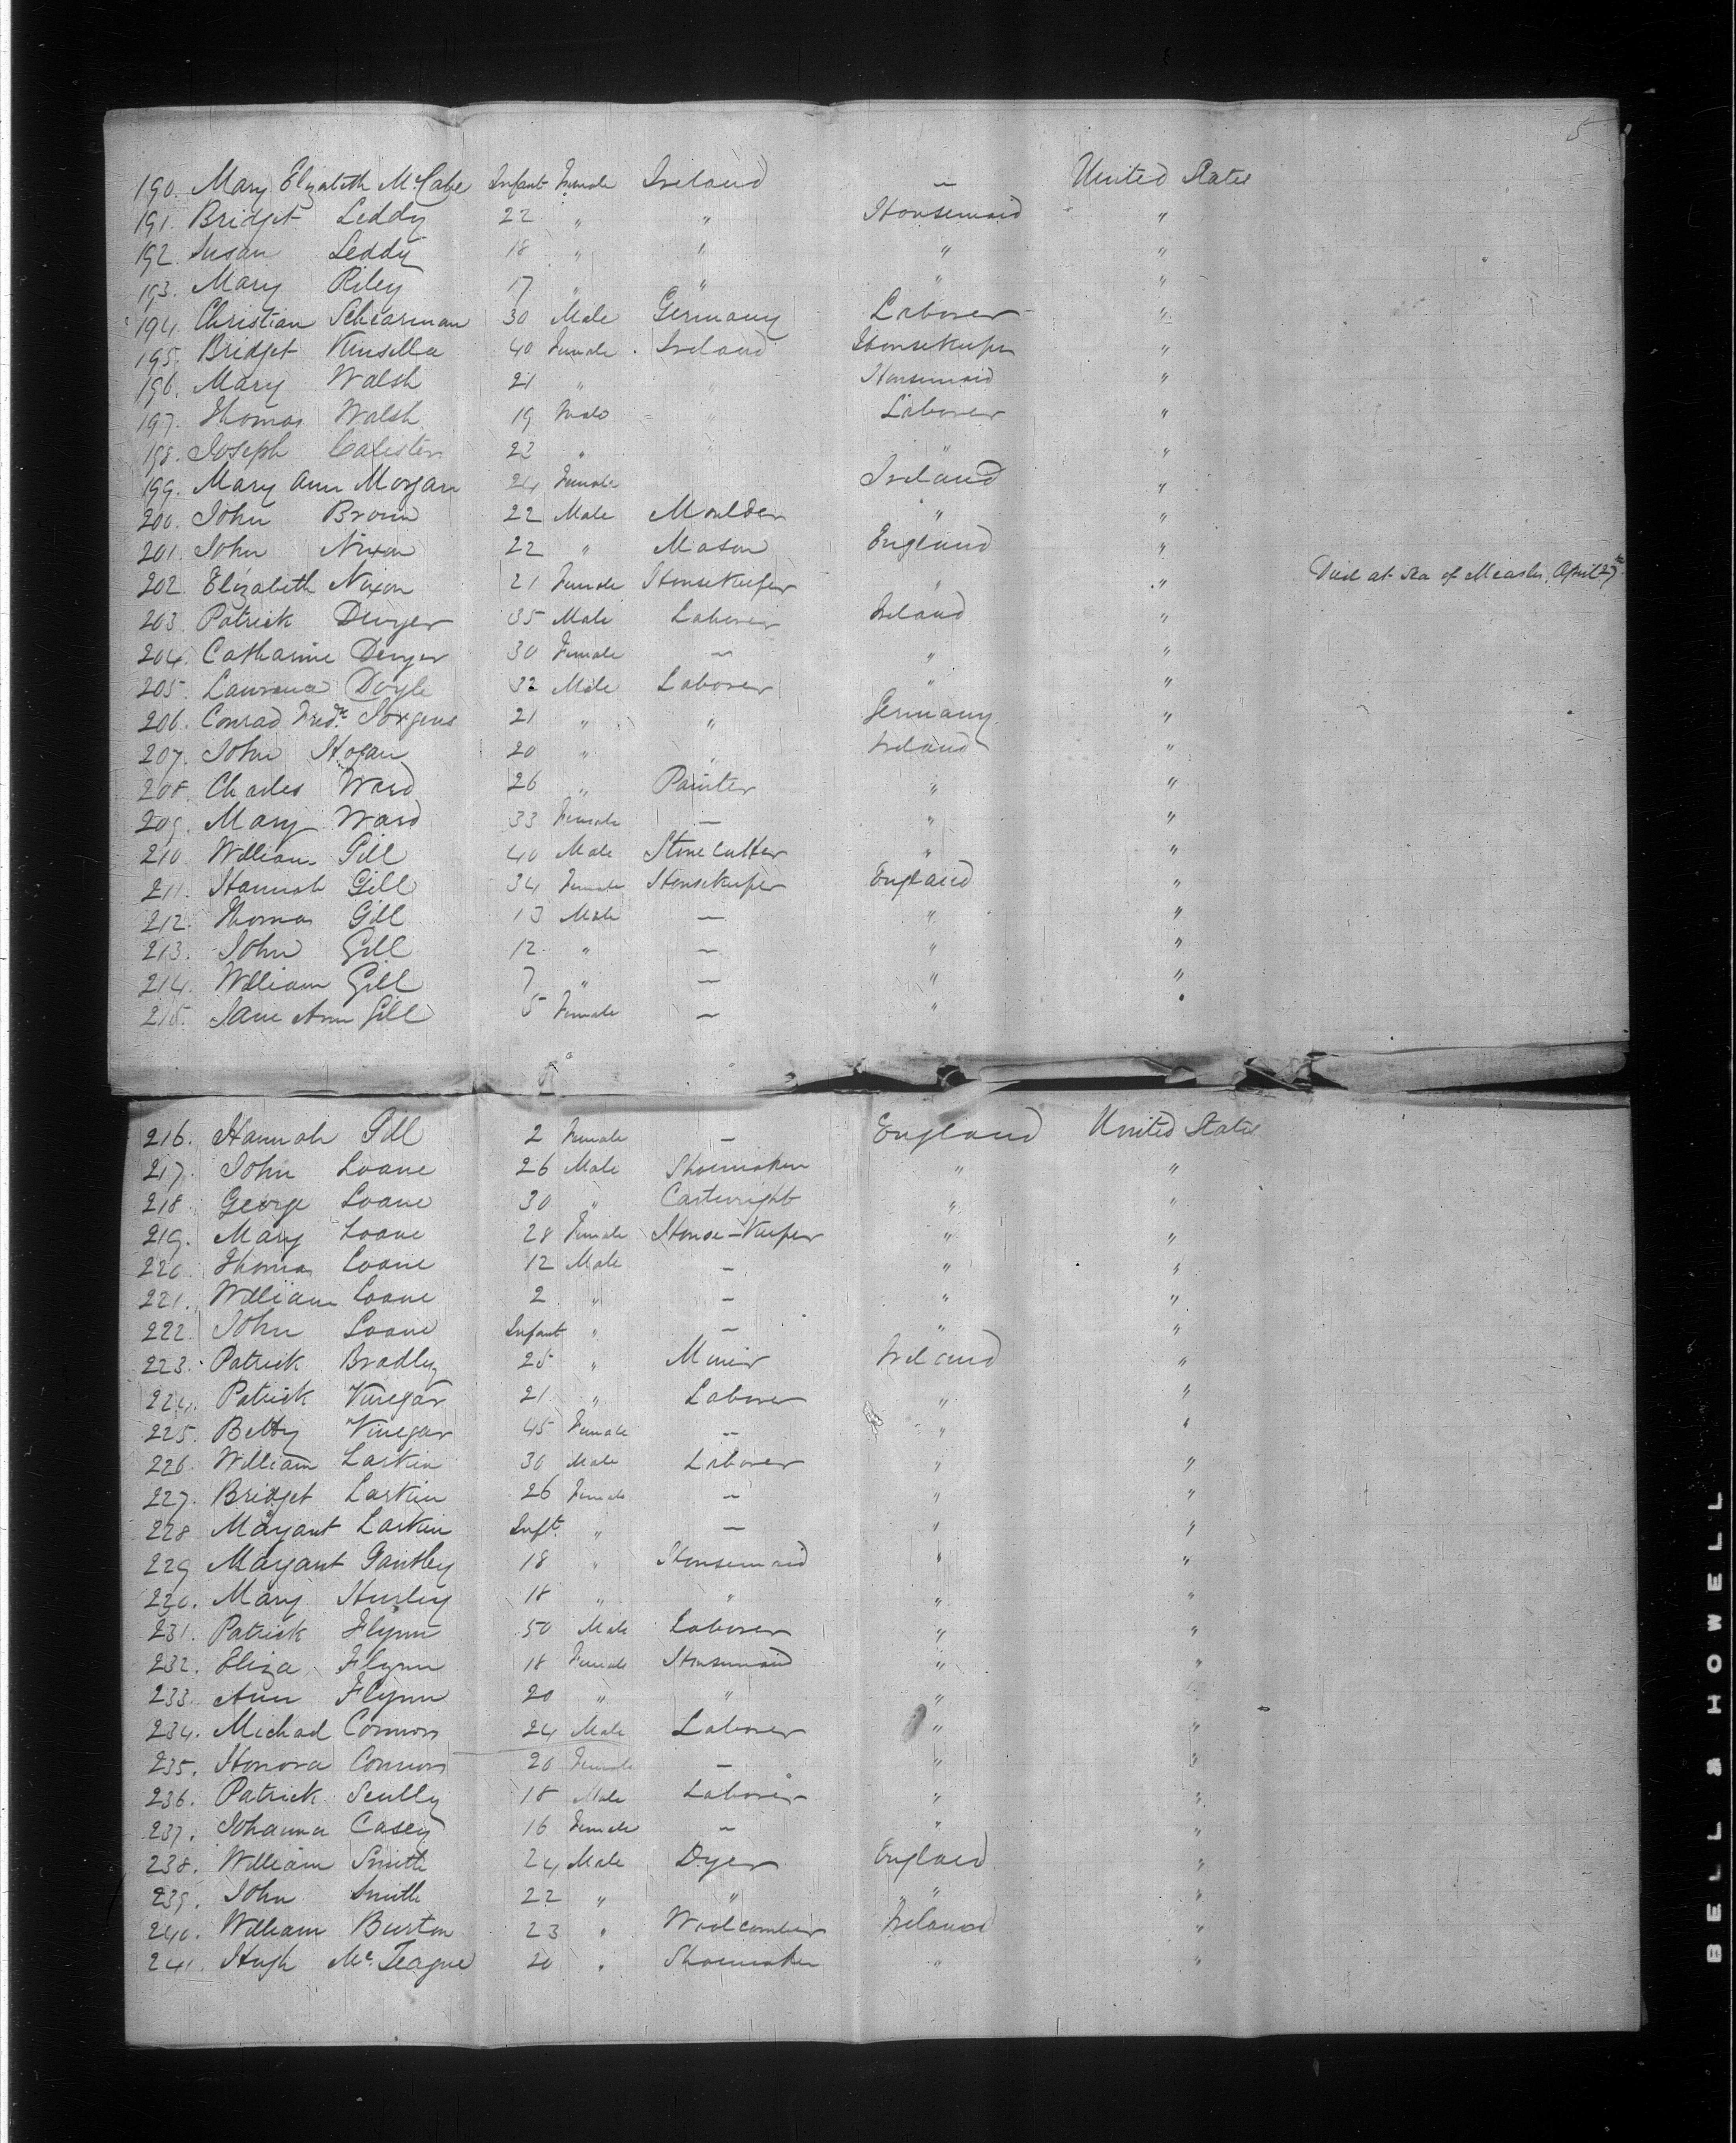 5
190. Mary Elizabeth McCabe Infant Female Ireland — United States
191. Bridget Leddy 22 " " Housemaid "
192. Susan Leddy 18 " " " "
193. Mary Riley 17 " " " "
194. Christian Schearman 30 Male Germany Laborer "
195. Bridget Kinsella 40 Female Ireland Housekeeper "
196. Mary Walsh 21 " " Housemaid "
197. Thomas Walsh 19 Male " Laborer "
198. Joseph 23 " " " "
199. Mary Ann Morgan 24 Female Ireland "
200. John Brown 22 Male Moulder " "
201. John Nixon 22 " Mason England "
202. Elizabeth Nixon 21 Female Housekeeper " " Died at Sea of Measles, April 27th
203. Patrick Dwyer 35 Male Laborer Ireland "
204. Catharine Dwyer 30 Female — " "
205. Laurence Doyle 32 Male Laborer " "
206. Conrad Fredk Jorgens 21 " " Germany "
207. John Hogan 20 " " Ireland "
208. Charles Ward 26 " Painter " "
209. Mary Ward 33 Female — " "
210. William Gill 40 Male Stonecutter " "
211. Hannah Gill 34 Female Housekeeper England "
212. Thomas Gill 13 Male — " "
213. John Gill 12 " — " "
214. William Gill 7 " — " "
215. Jane Ann Gill 5 Female — " "
216. Hannah Gill 2 Female — England United States
217. John Loane 26 Male Shoemaker " "
218. George Loane 30 " Cartwright " "
219. Mary Loane 28 Female House-Keeper " "
220. Thomas Loane 12 Male — " "
221. William Loane 2 " — " "
222. John Loane Infant " — " "
223. Patrick Bradley 25 " Miner Ireland "
224. Patrick Vinegar 21 " Laborer " "
225. Betty Vinegar 45 Female — " "
226. William Larkin 30 Male Laborer " "
227. Bridget Larkin 26 Female — " "
228 Margaret Larkin Inft. " — " "
229 Margaret Gantley 18 " Housemaid " "
230. Mary Hurley 18 " " " "
231. Patrick Flynn 50 Male Laborer " "
232. Eliza Flynn 18 Female Housemaid " "
233. Ann Flynn 20 " " " "
234. Michael Connors 24 Male Laborer " "
235. Honora Connors 20 Female — " "
236. Patrick Scully 18 Male Laborer " "
237. Johanna Casey 16 Female — " "
238. William Smith 24 Male Dyer England "
239. John Smith 22 " " " "
240. William Burton 23 " Woolcomber Ireland "
241. Hugh McTeague 20 " Shoemaker " "
BELL & HOWELL